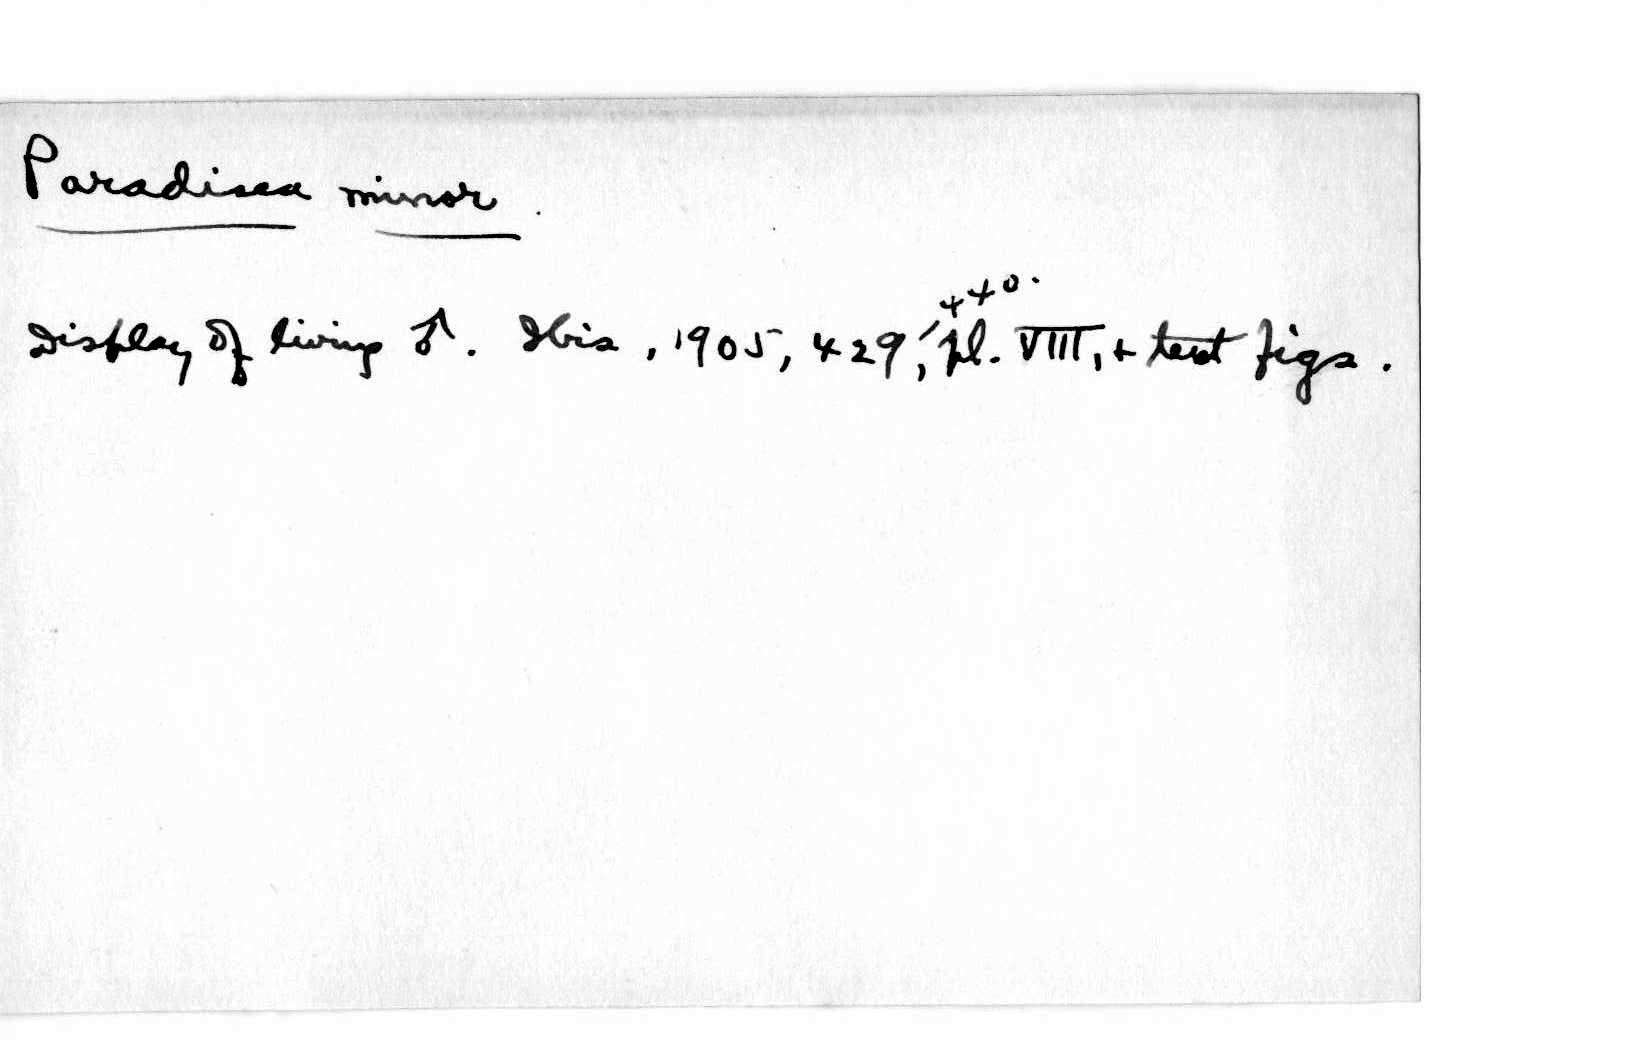 Paradisea minor.
440.
Display of living ♂. Ibis, 1905, 429, pl. VIII, + text figs.